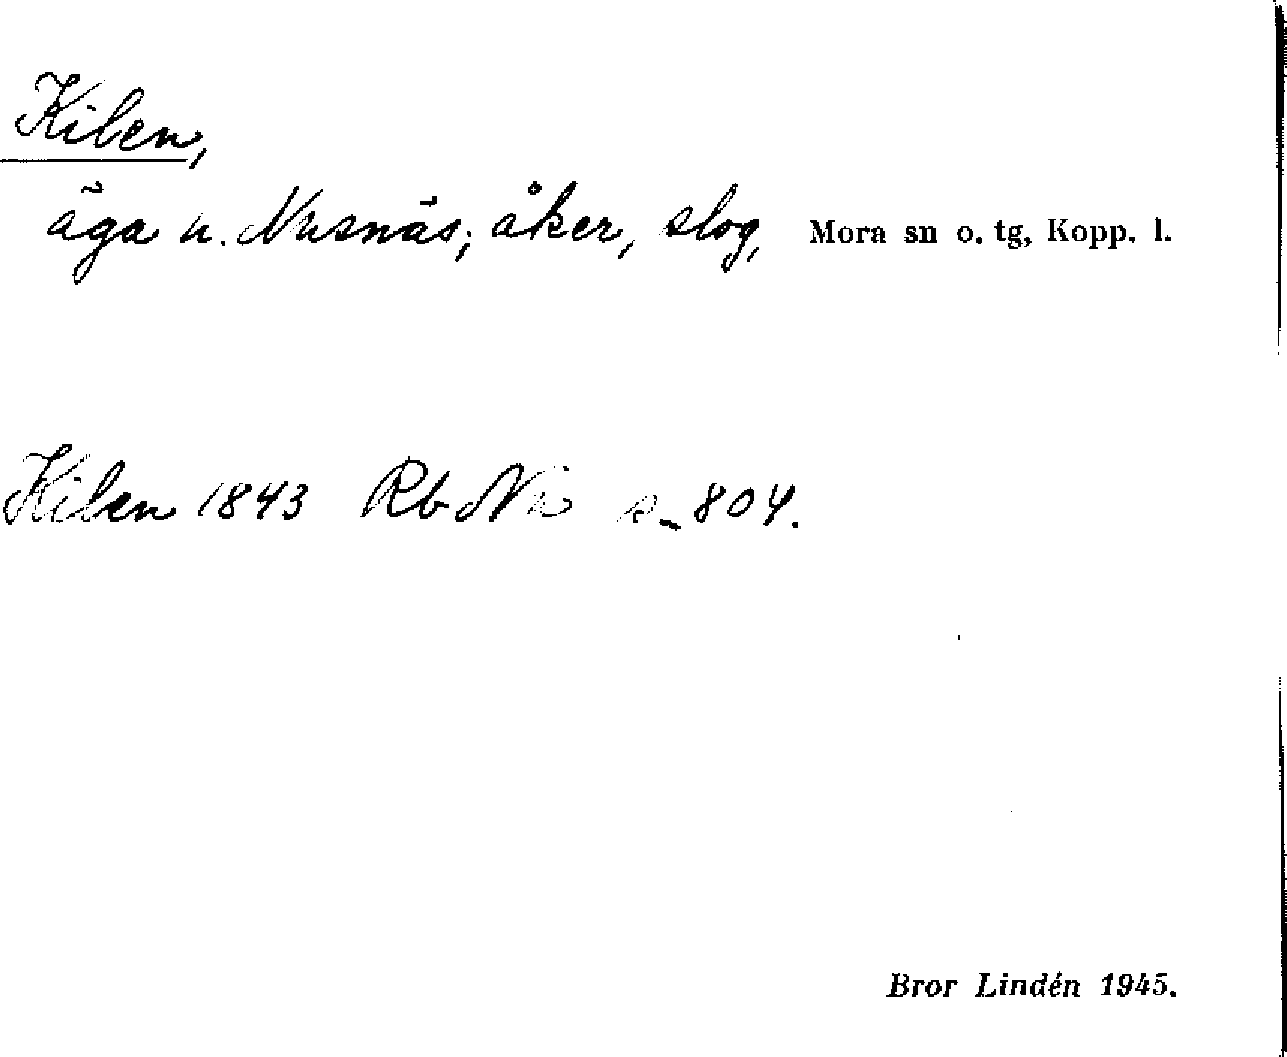 Kilen,
äga u. Nusnäs; åker, slog, Mora sn o. tg, Kopp. l.
Kilen 1843 Rb Nu s. 804.
Bror Lindén 1945.